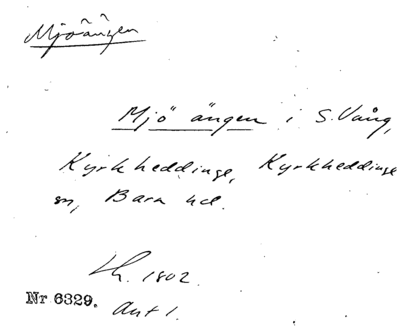 Mjöängen
Mjö ängen i S. Vång,
Kyrkheddinge, Kyrkheddinge
sn, Bara hd.
Lh. 1802.
Nr 6329.
Akt 1.